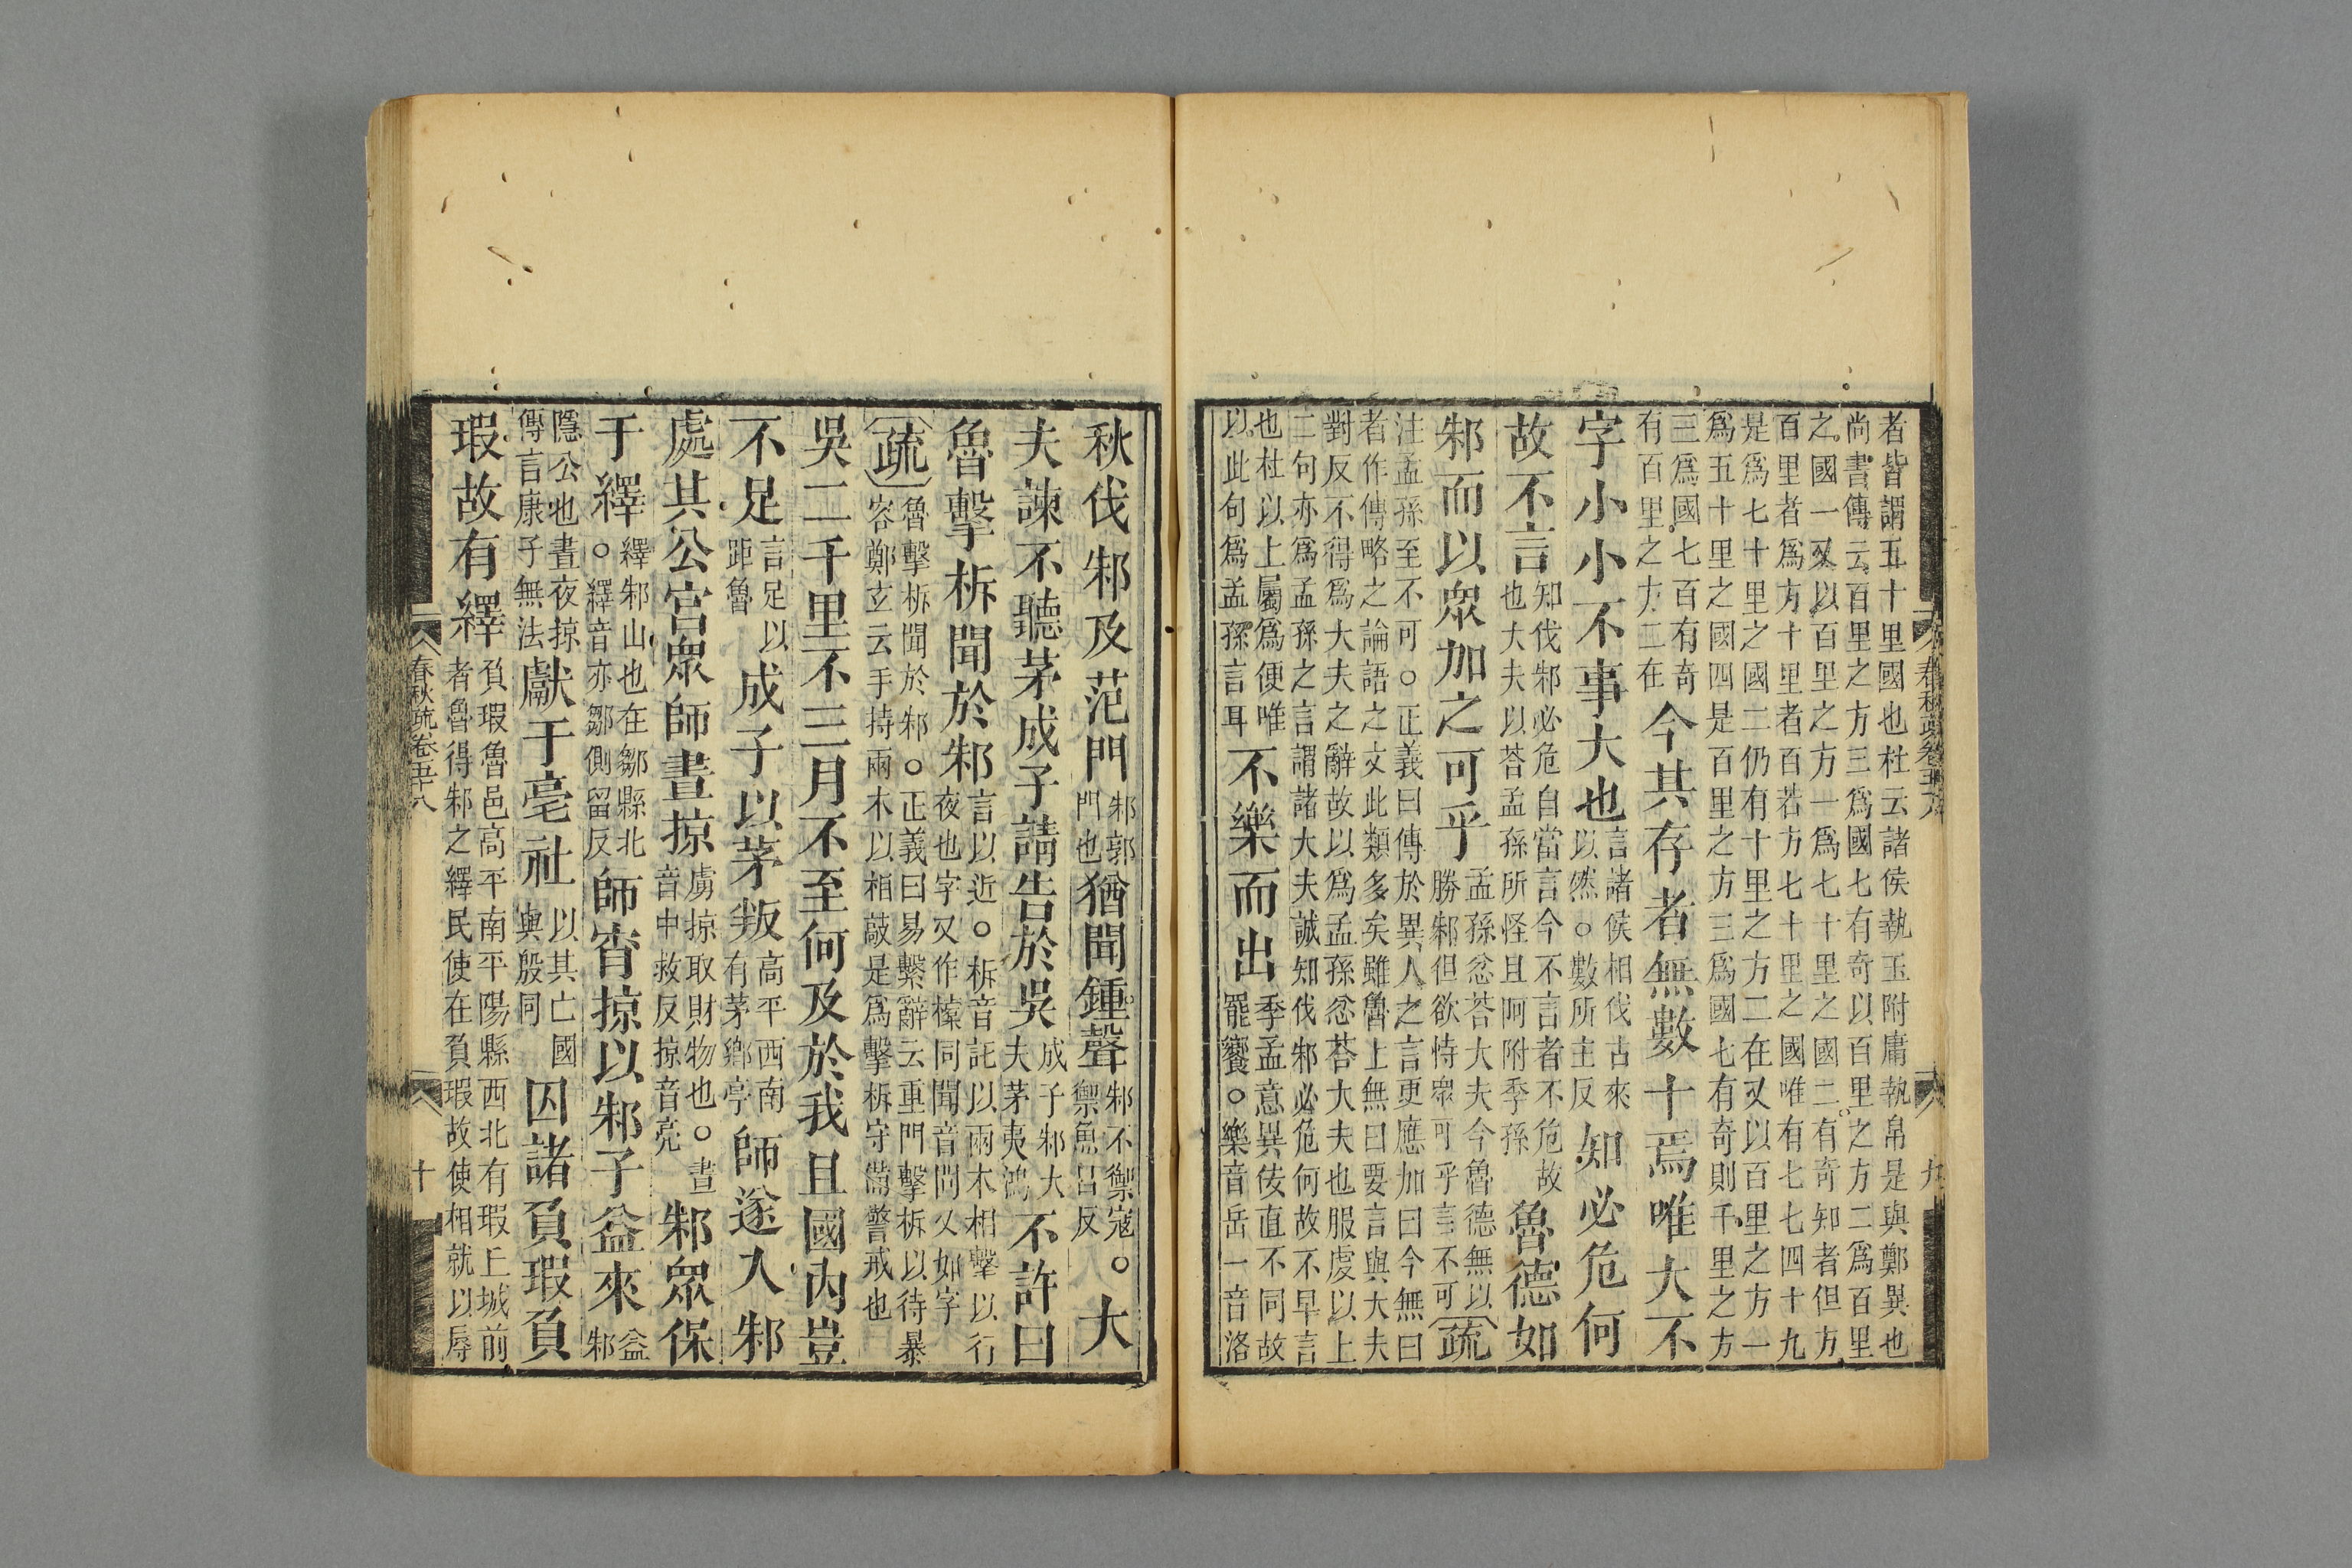 春秋疏卷五十八
九
者皆謂五十里國也杜云諸侯執玉附庸執帛是與鄭異也
尚書傳云百里之方三爲國七有奇以百里之方二爲百里
之國一又以百里之方一爲七十里之國二有奇知者但方
百里者爲方十里者百若方七十里之國唯有七七四十九
是爲七十里之國二仍有十里之方二在又以百里之方一
爲五十里之國四是百里之方三爲國七有奇則千里之方
三爲國七百有奇
有百里之方二在
今其存者無數十焉唯大不
字小小不事大也
言諸侯相伐古來
以然○數所主反
知必危何
故不言
知伐邾必危自當言今不言者不危故
也大夫以荅孟孫所怪且阿附季孫
魯德如
邾而以眾加之可乎
孟孫忿荅大夫今魯德無以
勝邾但欲恃眾可乎言不可
疏
注孟孫至不可○正義曰傳於異人之言更應加曰今無曰
者作傳略之論語之文此類多矣雖魯上無曰要言與大夫
對反不得爲大夫之辭故以爲孟孫忿荅大夫也服虔以上
二句亦爲孟孫之言謂諸大夫誠知伐邾必危何故不早言
也杜以上屬爲便唯
以此句爲孟孫言耳
不樂而出
季孟意異佞直不同故
罷饗○樂音岳一音洛
秋伐邾及范門
邾郭
門也
猶聞鍾聲
邾不禦寇○
禦魚呂反
大
夫諫不聽茅成子請告於吳
成子邾大
夫茅夷鴻
不許曰
魯擊柝聞於邾
言以近○柝音託以兩木相擊以行
夜也字又作𣝔同聞音問又如字
疏
魯擊柝聞於邾○正義曰易繫辭云重門擊柝以待暴
客鄭玄云手持兩木以相敲是爲擊柝守備警戒也
吳二千里不三月不至何及於我且國內豈
不足
言足以
距魯
成子以茅叛
高平西南
有茅鄉亭
師遂入邾
處其公宮眾師晝掠
虜掠取財物也○晝
音中救反掠音亮
邾眾保
于繹
繹邾山也在鄒縣北
○繹音亦鄒側留反
師宵掠以邾子益來
益
邾
隱公也晝夜掠
傳言康子無法
獻于亳社
以其亡國
與殷同
囚諸負瑕負
瑕故有繹
負瑕魯邑高平南平陽縣西北有瑕丘城前
者魯得邾之繹民使在負瑕故使相就以辱
春秋疏卷五十八
十